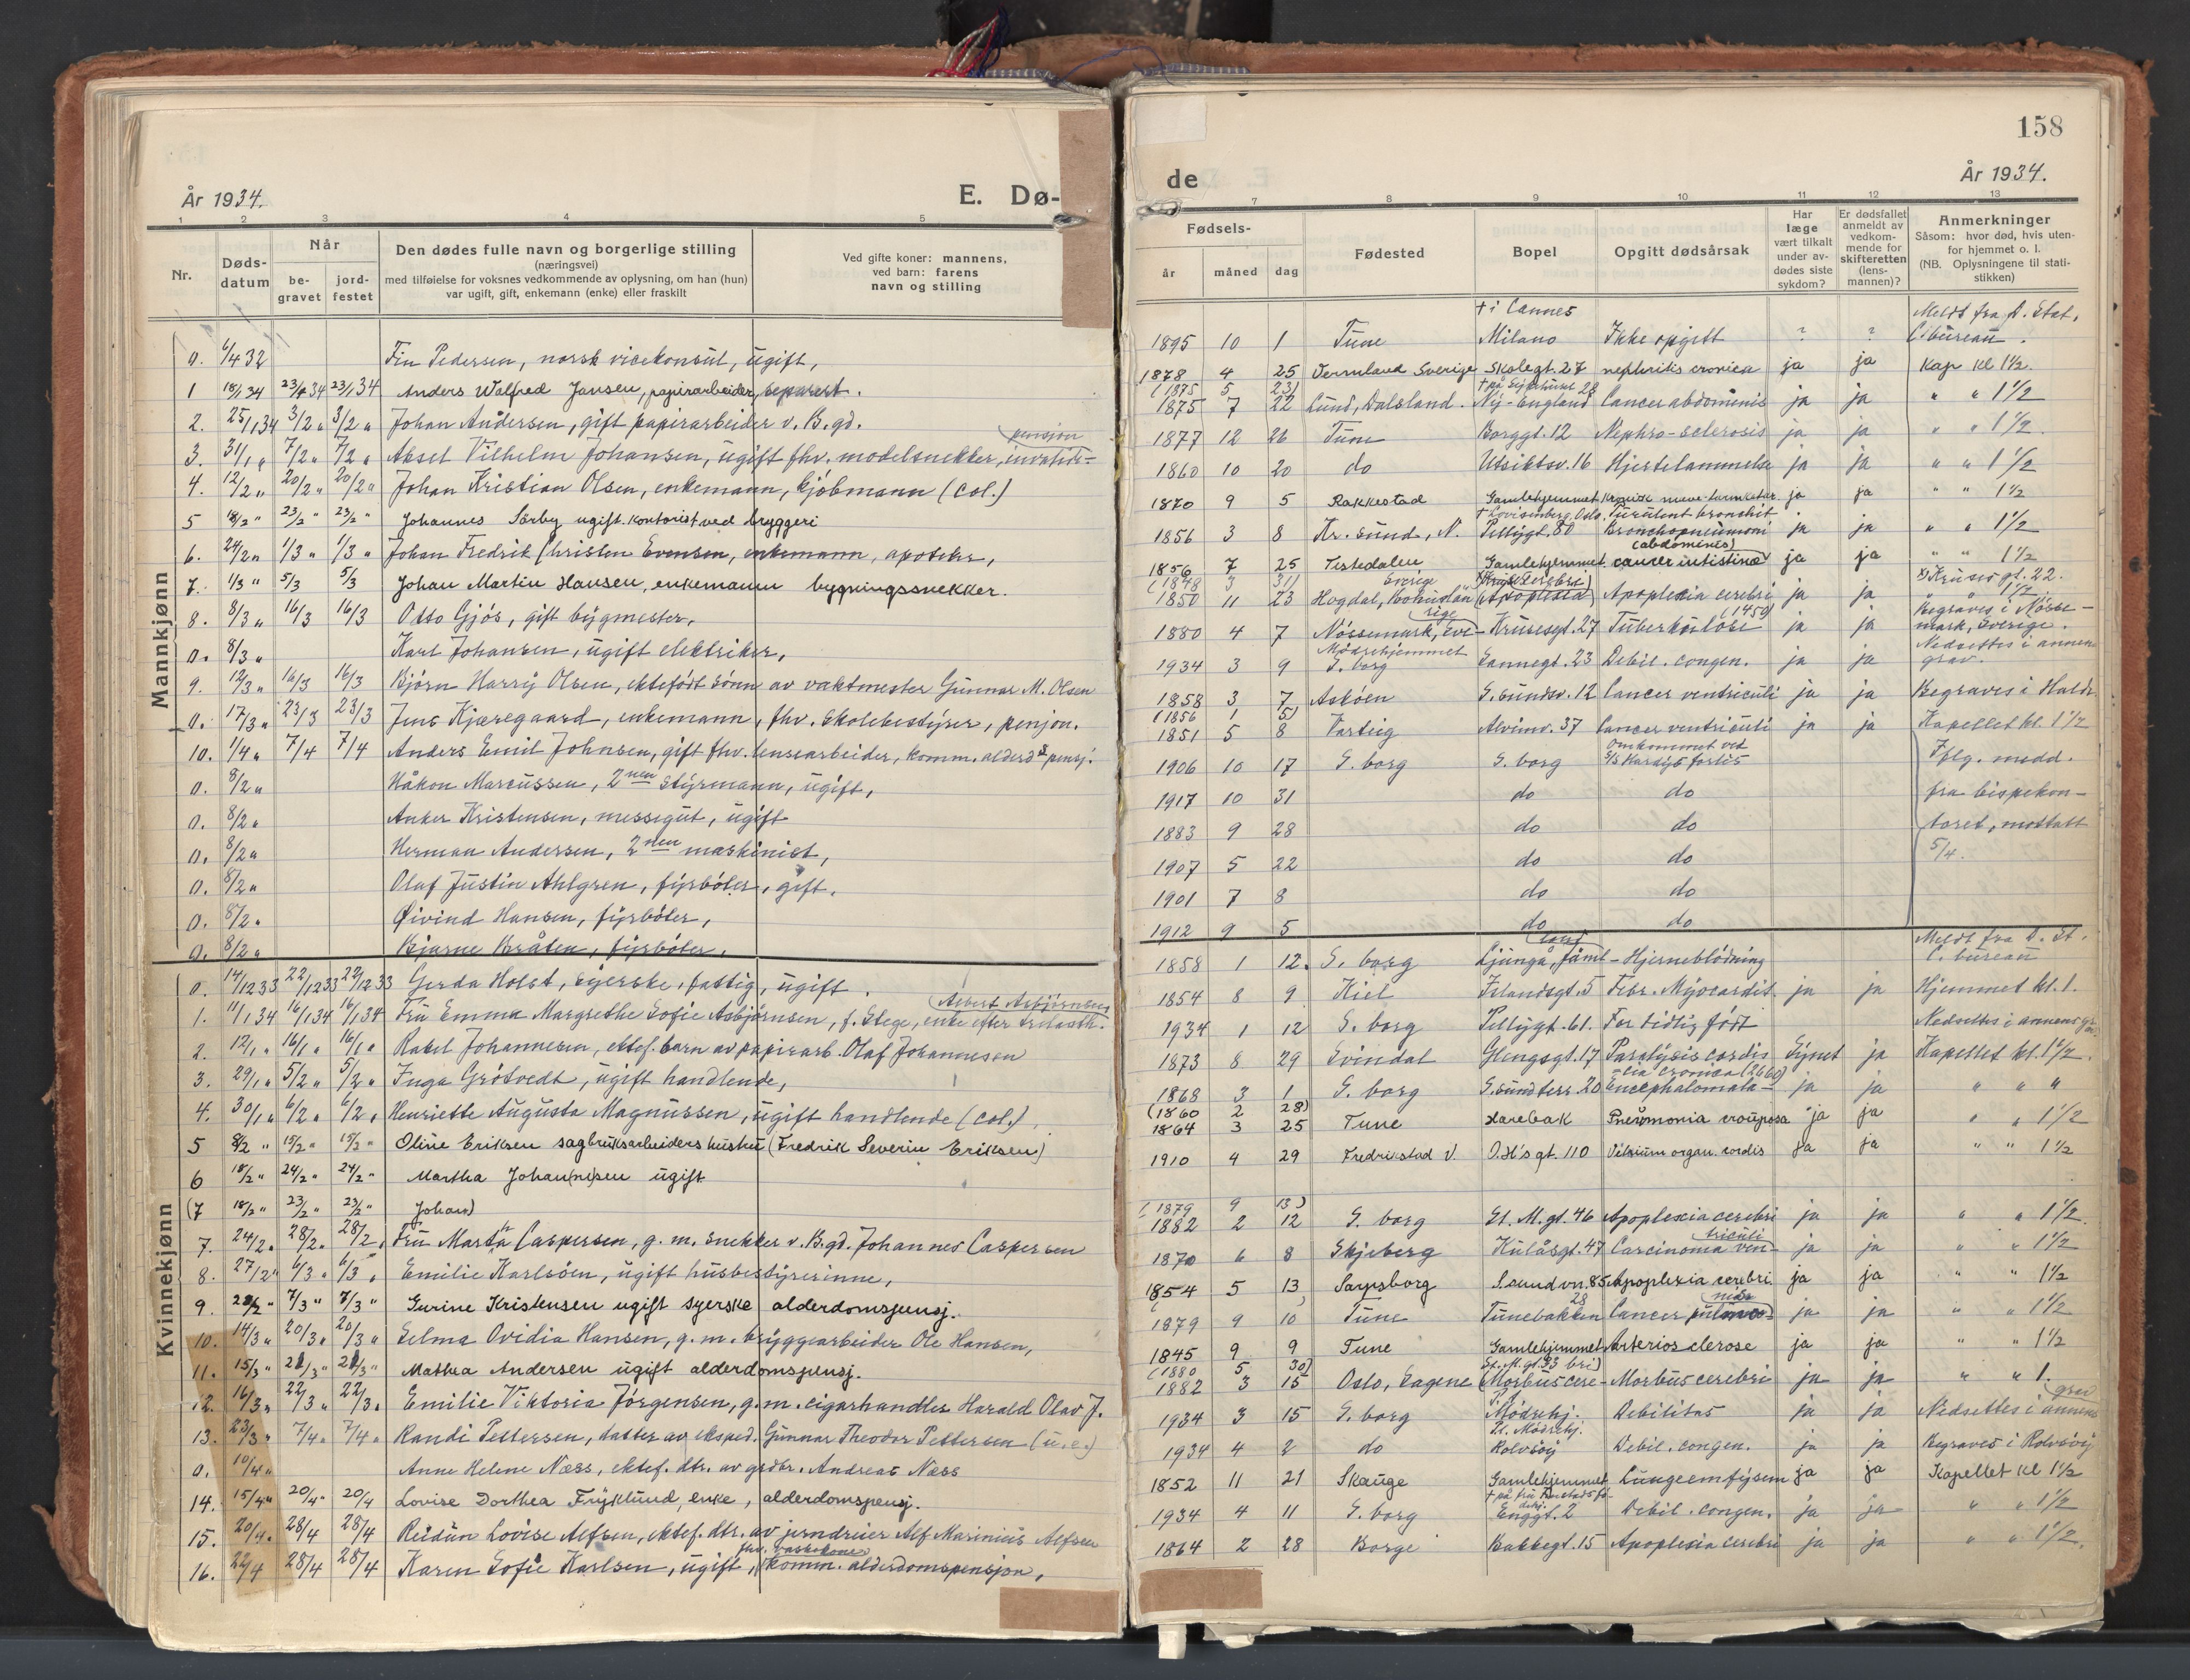 158
År 1934.
E. Dø-
de
År 1934.
1 2 3 4 5
7 8 9 10 11 12 13
Nr.
Døds-
datum
Når
be-
gravet
jord-
festet
Den dødes fulle navn og borgerlige stilling
(næringsvei)
med tilføielse for voksnes vedkommende av oplysning, om han (hun)
var ugift, gift, enkemann (enke) eller fraskilt
Ved gifte koner: mannens,
ved barn: farens
navn og stilling
Fødsels-
år måned dag
Fødested
Bopel
Opgitt dødsårsak
Har
læge
vært tilkalt
under av-
dødes siste
sykdom?
Er dødsfallet
anmeldt av
vedkom-
mende for
skifteretten
(lens-
mannen)?
Anmerkninger
Såsom: hvor død, hvis uten-
for hjemmet o. l.
(NB. Oplysningene til stati-
stikken)
Mannkjønn
0. 6/4 32 Fin Pedersen, norsk vicekonsul, ugift,
1 18/1 34 23/1 34 23/1 34 Anders Walfred Jansen, papirarbeider, separert.
2. 25/1 34 3/2 " 3/2 " Johan Andersen, gift papirarbeider v. B.gd.
pensjon
3. 31/1 " 7/2 " 7/2 " Aksel Vilhelm Johansen, ugift fhv. modelsnekker, invalide-
4. 12/2 " 20/2 " 20/2 " Johan Kristian Olsen, enkemann, kjøbmann (col.)
5 18/2 " 23/2 " 23/2 " Johannes Sørby ugift. kontorist ved bryggeri
6. 24/2 " 1/3 " 1/3 " Johan Fredrik Christen Evensen, enkemann, apoteker,
7. 1/3 " 5/3 5/3 Johan Martin Hansen, enkemann bygningssnekker.
8. 8/3 " 16/3 16/3 Otto Gjøs, gift bygmester,
0. 8/3 " Karl Johansen, ugift elektriker,
9. 12/3 " 16/3 16/3 Bjørn Harry Olsen, ektefødt sønn av vaktmester Gunnar M. Olsen
0. 17/3 " 23/3 23/3 Jens Kjæregaard, enkemann, fhv. skolebestyrer, penjon.
10. 1/4 " 7/4 7/4 Anders Emil Johnsen, gift fhv. lensearbeider, komm. alderds pensj.
0. 8/2 " Håkon Marcussen, 2nen styrmann, ugift,
0. 8/2 " Anker Kristensen, messegut, ugift
0. 8/2 " Herman Andersen, 2nen maskinist,
0. 8/2 " Olaf Justin Ahlgren, fyrbøter, gift.
0. 8/2 " Øivind Hansen, fyrbøter,
0. 8/2 " Bjarne Bråten, fyrbøter.
Kvinnekjønn
0. 14/12 33 22/12 33 22/12 33 Gerda Holst, syerske, fattig, ugift.
1. 11/1 34 16/1 34 16/1 34 Fru Emma Margrethe Sofie Asbjørnsen, f. Stege, enke efter
2. 12/1 " 16/1 " 16/1 " Rakel Johannesen, ektef. barn av papirarb. Olaf Johannesen
3. 29/1 " 5/2 " 5/2 " Inga Grøtvedt, ugift handlende,
4. 30/1 " 6/2 " 6/2 " Henriette Augusta Magnussen, ugift handlende (col.),
5 8/2 " 15/2 " 15/2 " Oline Eriksen sagbruksarbeiders hustru (Fredrik Severin Eriksen)
6 18/2 " 24/2 " 24/2 " Martha Johan(ne)sen ugift
(7 18/2 " 23/2 " 23/2 " Johan)
7. 24/2 " 28/2 " 28/2 " Fru Marta Caspersen, g. m. snekker v. B.gd. Johannes Caspersen
8. 27/2 " 6/3 " 6/3 " Emilie Karlsøen, ugift husbestyrerinne,
9. 28/2 " 7/3 " 7/3 " Gurine Kristensen ugift syerske alderdomspensj.
10. 14/3 " 20/3 " 20/3 " Selma Ovidia Hansen, g. m. bryggearbeider Ole Hansen,
11. 15/3 " 21/3 " 21/3 " Mathea Andersen ugift alderdomspensj.
12. 16/3 " 22/3 " 22/3 " Emilie Viktoria Jørgensen, g. m. cigarhandler Harald Olav J.
13. 23/3 " 7/4 " 7/4 " Randi Pettersen, datter av eksped. Gunnar Theodor Pettersen (u.e.)
0. 10/4 " Anne Helene Næss, ektef. dtr. av grdbr. Andreas Næss
14. 15/4 " 20/4 " 20/4 Lovise Dorthea Fryklund, enke, alderdomspensj.
15. 20/4 " 28/4 28/4 Reidun Lovise Alfsen, ektef. dtr. av jerndreier Alf Marinius Alfsen
fhv. vaskekone
16. 22/4 28/4 28/4 Karen Sofie Karlsen, ugift, komm. alderdomspensjon,
† i Cannes Meldt fra d. Stat.
1895 10 1 Tune Milano Ikke opgitt ? ? C. bureau.
1878 4 25 Vermland Sverige Skolegt. 27 nephritis cronica ja ja Kap kl 1½.
(1875 5 23)
1875 7 22 Lund, Dalsland. Ny-England Cancer abdominis ja ja " " 1½
1877 12 26 Tune Borggt. 12 Nephro-sclerosis ja ja " " 1½
1860 10 20 do Utsiktsv. 16 Hjertelammelse ja ja " " 1½
1870 9 5 Rakkestad Gamlehjemmet Kronisk mave-tarmkatar. ja ja " " 1½
† Lovisenberg, Oslo. Purulent bronchit
1856 3 8 Kr. sund, N. Pellygt. 80 Bronchopneumoni ja ja " " 1½
(abdominis)
1856 7 25 Tistedalen Gamlehjemmet cancer intistinæ ja ja " " 1½
(1848 3 31) Sverige Krusesgt. 22.
1850 11 23 Hogdal, Bohuslän (Apoplexia) Apoplexia cerebri ja ja 1½
1880 4 7 Nössemark, Sverige Krusesgt. 27 Tuberkulose ja ja Begraves i Nösse-
mark, Sverige.
Mødrehjemmet Nedsettes i annen
1934 3 9 S. borg Sannegt. 23 Debil. congen. ja ja grav.
1858 3 7 Askøen G. sundsv. 12 Cancer ventriculi ja ja Begraves i Hald.
(1856 1 5)
1851 5 8 Varteig Alvimv. 37 Cancer ventriculi ja ja Kapellet kl. 1½
Omkommet ved
1906 10 17 S. borg S. borg S/S forlis Iflg. medd.
1917 10 31 do do fra bispekon-
1883 9 28 do do toret, mottatt
1907 5 22 do do 5/4.
1901 7 8 do do
1912 9 5 do do
Meldt fra d. St.
1858 1 12. S. borg Ljungå, Jämt- Hjerneblødning C. bureau
1854 8 9 Kiel Irlandsgt. 5 Febr. Myocardit. ja ja Hjemmet kl. 1.
1934 1 12 S. borg Pellygt. 61. For tidlig født Nedsettes i annens
1873 8 29 Svindal Glengsgt. 17 Paralysis cordis Synet ja Kapellet kl. 1½.
cia cronica (2660)
1868 3 1 S. borg G. sundterr. 20 Encephalomala- ja ja " " "
(1860 2 28)
1864 3 25 Tune Harebak Pneumonia crouposa ja ja " " 1½
1910 4 29 Fredrikstad V. O.H's gt. 110 Vitium organ. cordis ja ja " " 1½
(1879 9 13)
1882 2 12 S. borg St. M. gt. 46 Apoplexia cerebri ja ja " " 1½
triculi
1870 6 8 Skjeberg Kulåsgt. 47 Carcinoma ven- ja ja " " 1½
1854 5 13 Sarpsborg S. sundvn. 85 Apoplexia cerebri ja ja " " 1½
28
1879 9 10 Tune Tunebakken Cancer ja ja " " 1½
1845 9 9 Tune Gamlehjemmet Arteriosclerose ja ja " " 1½
(1880 5 30) St. M. gt. 33 bri)
1882 3 15 Oslo, Sagene (Morbus cere- Morbus cerebri ja ja " " 1.
grav
1934 3 15 S. borg Mødrehj. Debilitas ja ja Nedsettes i annens
Pt. Mødrehj.
1934 4 2 do Rolvsøy Debil. congen. ja ja Begraves i Rolvsøy
1852 11 21 Skauge Gamlehjemmet Lungeemfysem ja ja Kapellet kl 1½
1934 4 11 S. borg Enggt. 2 Debil. congen. ja ja " " 1½
1864 2 28 Borge Bakkegt. 15 Apoplexia cerebri ja ja " " 1½.